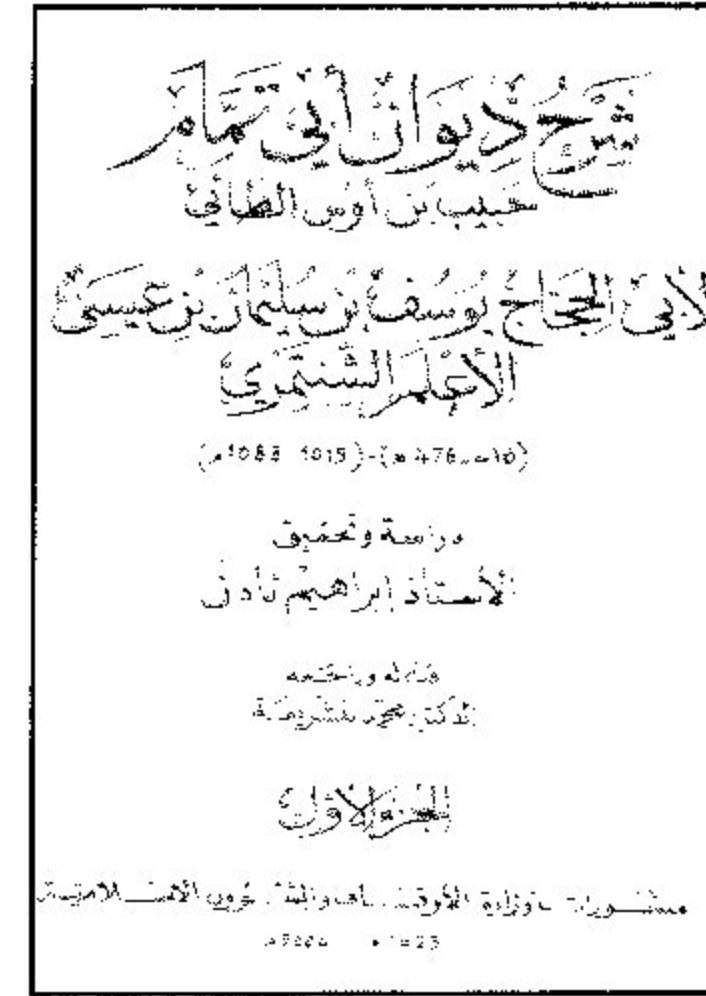 شرح ديوان أبي تمام
حبيب بن أوس الطائي
لأبي الحجاج يوسف بن سليمان بن عيسى
الأعلم الشنتمري
(410هـ-476هـ)-(1015-1083م)
دراسة وتحقيق
الأستاذ إبراهيم نادن
قدم له وراجعه
الدكتور محمد بنشريفة
الجزء الأول
منشورات وزارة الأوقاف والشؤون الإسلامية